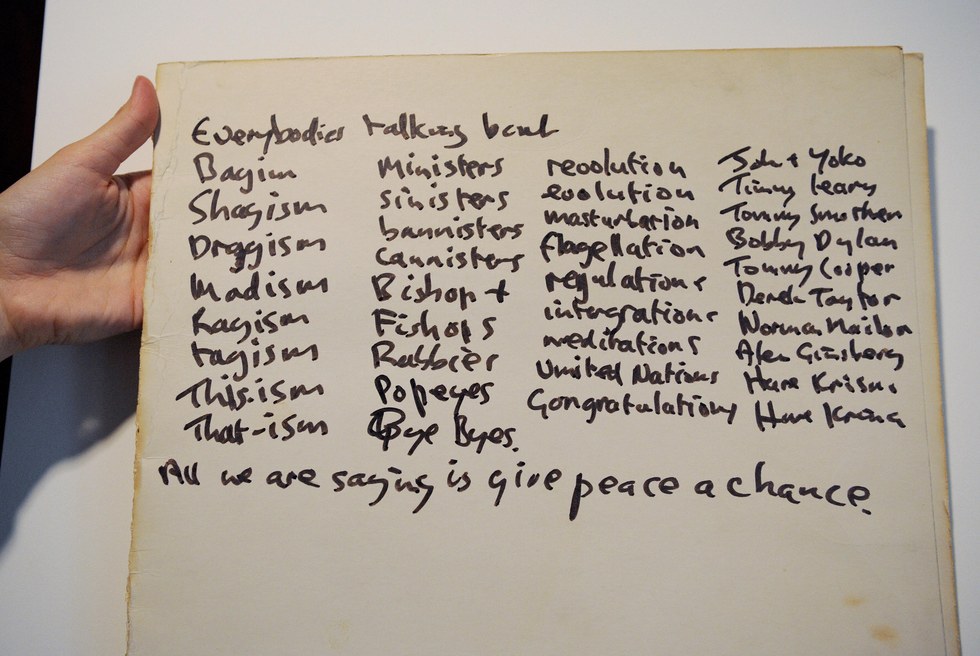 Everybodies talking bout
Bagism
Shagism
Draggism
Madism
Ragism
tagism
This.ism
That-ism
Ministers
sinisters
bannisters
cannisters
Bishop +
Fishops
Rabbier
Popeyes
Bye Byes.
revolution
evolution
masturbation
flagellation
regulations
intergrations
meditations
United Nations
Gongratulations
John + Yoko
Timmy Leary
Tommy Smothers
Bobby Dylan
Tommy Cooper
Derek Taylor
Norman Mailer
Alen Ginsberg
Hare Krisna
Hare Krisna
All we are saying is give peace a chance.